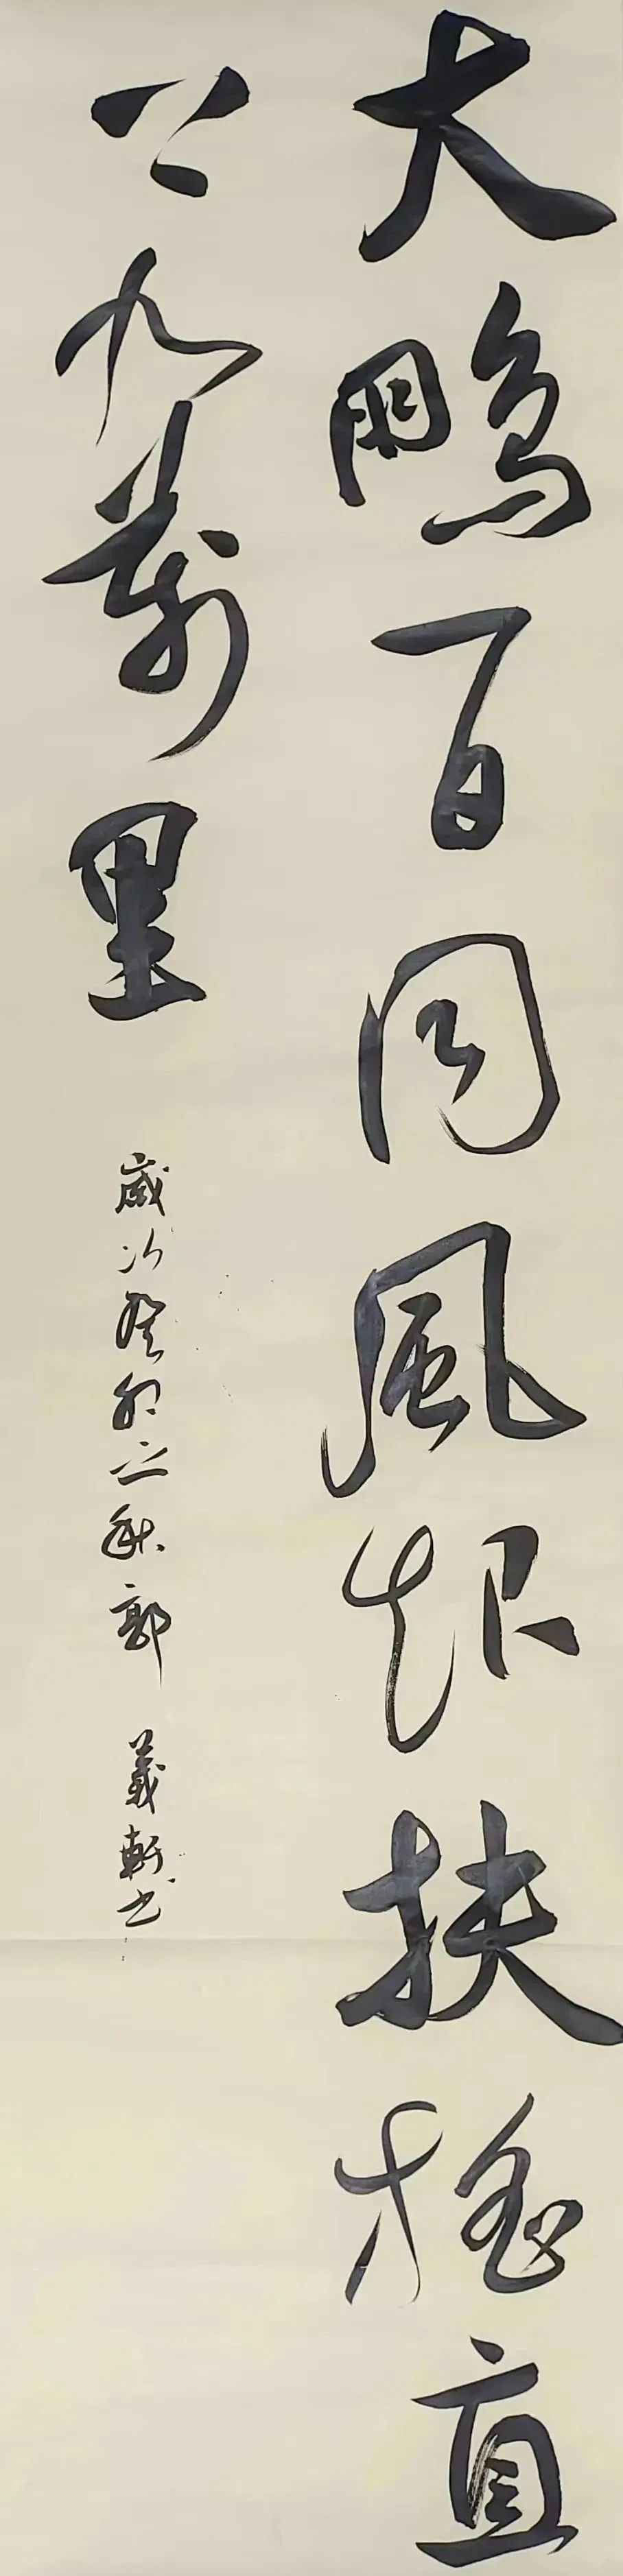 大鵬一日同風起扶搖直
上九萬里
歲次癸卯之秋郭 義軒书